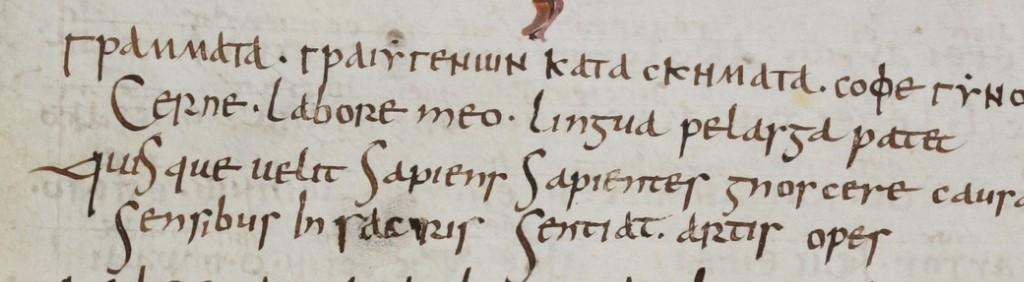 ΓΡΑΜΜΑΤΑ · ΓΡΑΙΥΓΕΝΙΩΝ ΚΑΤΑ CΚΗΜΑΤΑ · CΟΦΕ ΓΥΝΟ
Cerne · labore meo · lingua pelarga patet
Quisque uelit sapiens sapientes gnoscere causa
Sensibus In sacris sentiat. artis opes